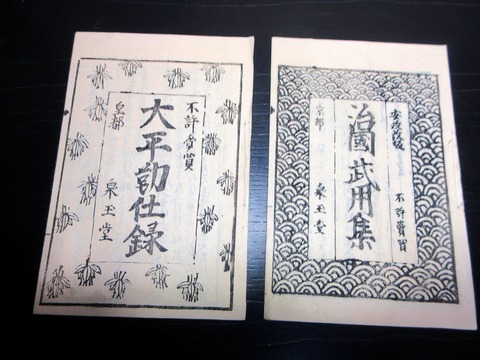 不許賣買
治國武用集
京都 泉玉堂
不許賣買
大平仕録
皇都 泉玉堂